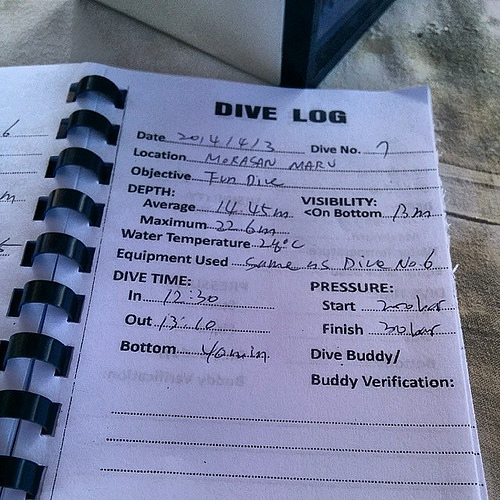 DIVE LOG
Date 2014/4/3 Dive No. 7
Location MORASAN MARU
Objective Fun Dive
DEPTH: VISIBILITY:
Average 14.45m <On Bottom 13m
Maximum 22.6m
Water Temperature 24°C
Equipment Used Same as Dive No.6
DIVE TIME: PRESSURE:
In 12:30 Start 200bar
Out 13:10 Finish 30bar
Bottom 40min Dive Buddy/
Buddy Verification: